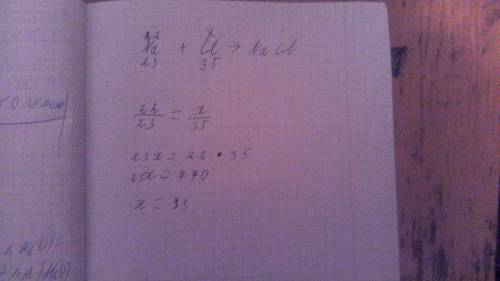 22 x
Na + Cl → NaCl
23 35
22/23 = x/35
23x = 22 • 35
23x = 770
x = 33